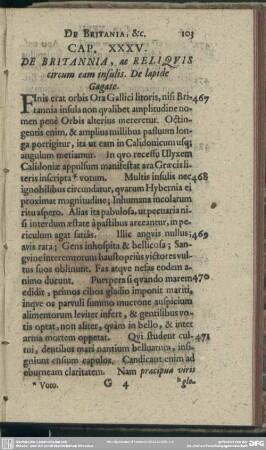 DE BRITANIA, &c. 103
CAP. XXXV.
DE BRITANNIA, ac RELIQVIS
circum eam insulis. De lapide
Gagate.
FInis erat orbis Ora Gallici litoris, nisi Bri- 467
tannia insula non qvalibet amplitudine no-
men penè Orbis alterius mereretur. Octin-
gentis enim, & amplius millibus passuum longa
porrigitur, ita ut eam in Calidonicum usq;
angulum metiamur. In qvo recessu Ulyxem
Calidoniæ appulsum manifestat ara Græcis li-
teris inscripta * votum. Multis insulis nec 468
ignobilibus circundatur, qvarum Hybernia ei
proximat magnitudine; Inhumana incolarum
ritu aspero. Alias ita pabulosa, ut pecuaria ni-
si interdum æstate à pastibus arceantur, in pe-
riculum agat satias. Illic angvis nullus; 469
avis rara; Gens inhospita & bellicosa; San-
gvine interemtorum hausto prius victores vul-
tus suos oblinunt. Fas atqve nefas eodem a-
nimo ducunt. Puerpera si qvando marem 470
edidit, primos cibos gladio imponit mariti,
inqve os parvuli summo mucrone auspicium
alimentorum leviter infert, & gentilibus vo-
tis optat, non aliter, quàm in bello, & inter
arma mortem oppetat. Qvi student cul- 471
tui, dentibus mari nantium belluarum, insi-
gniunt ensium capulos. Candicant enim ad
eburneam claritatem. Nam præcipua viris
* Voto. G 4 glo-